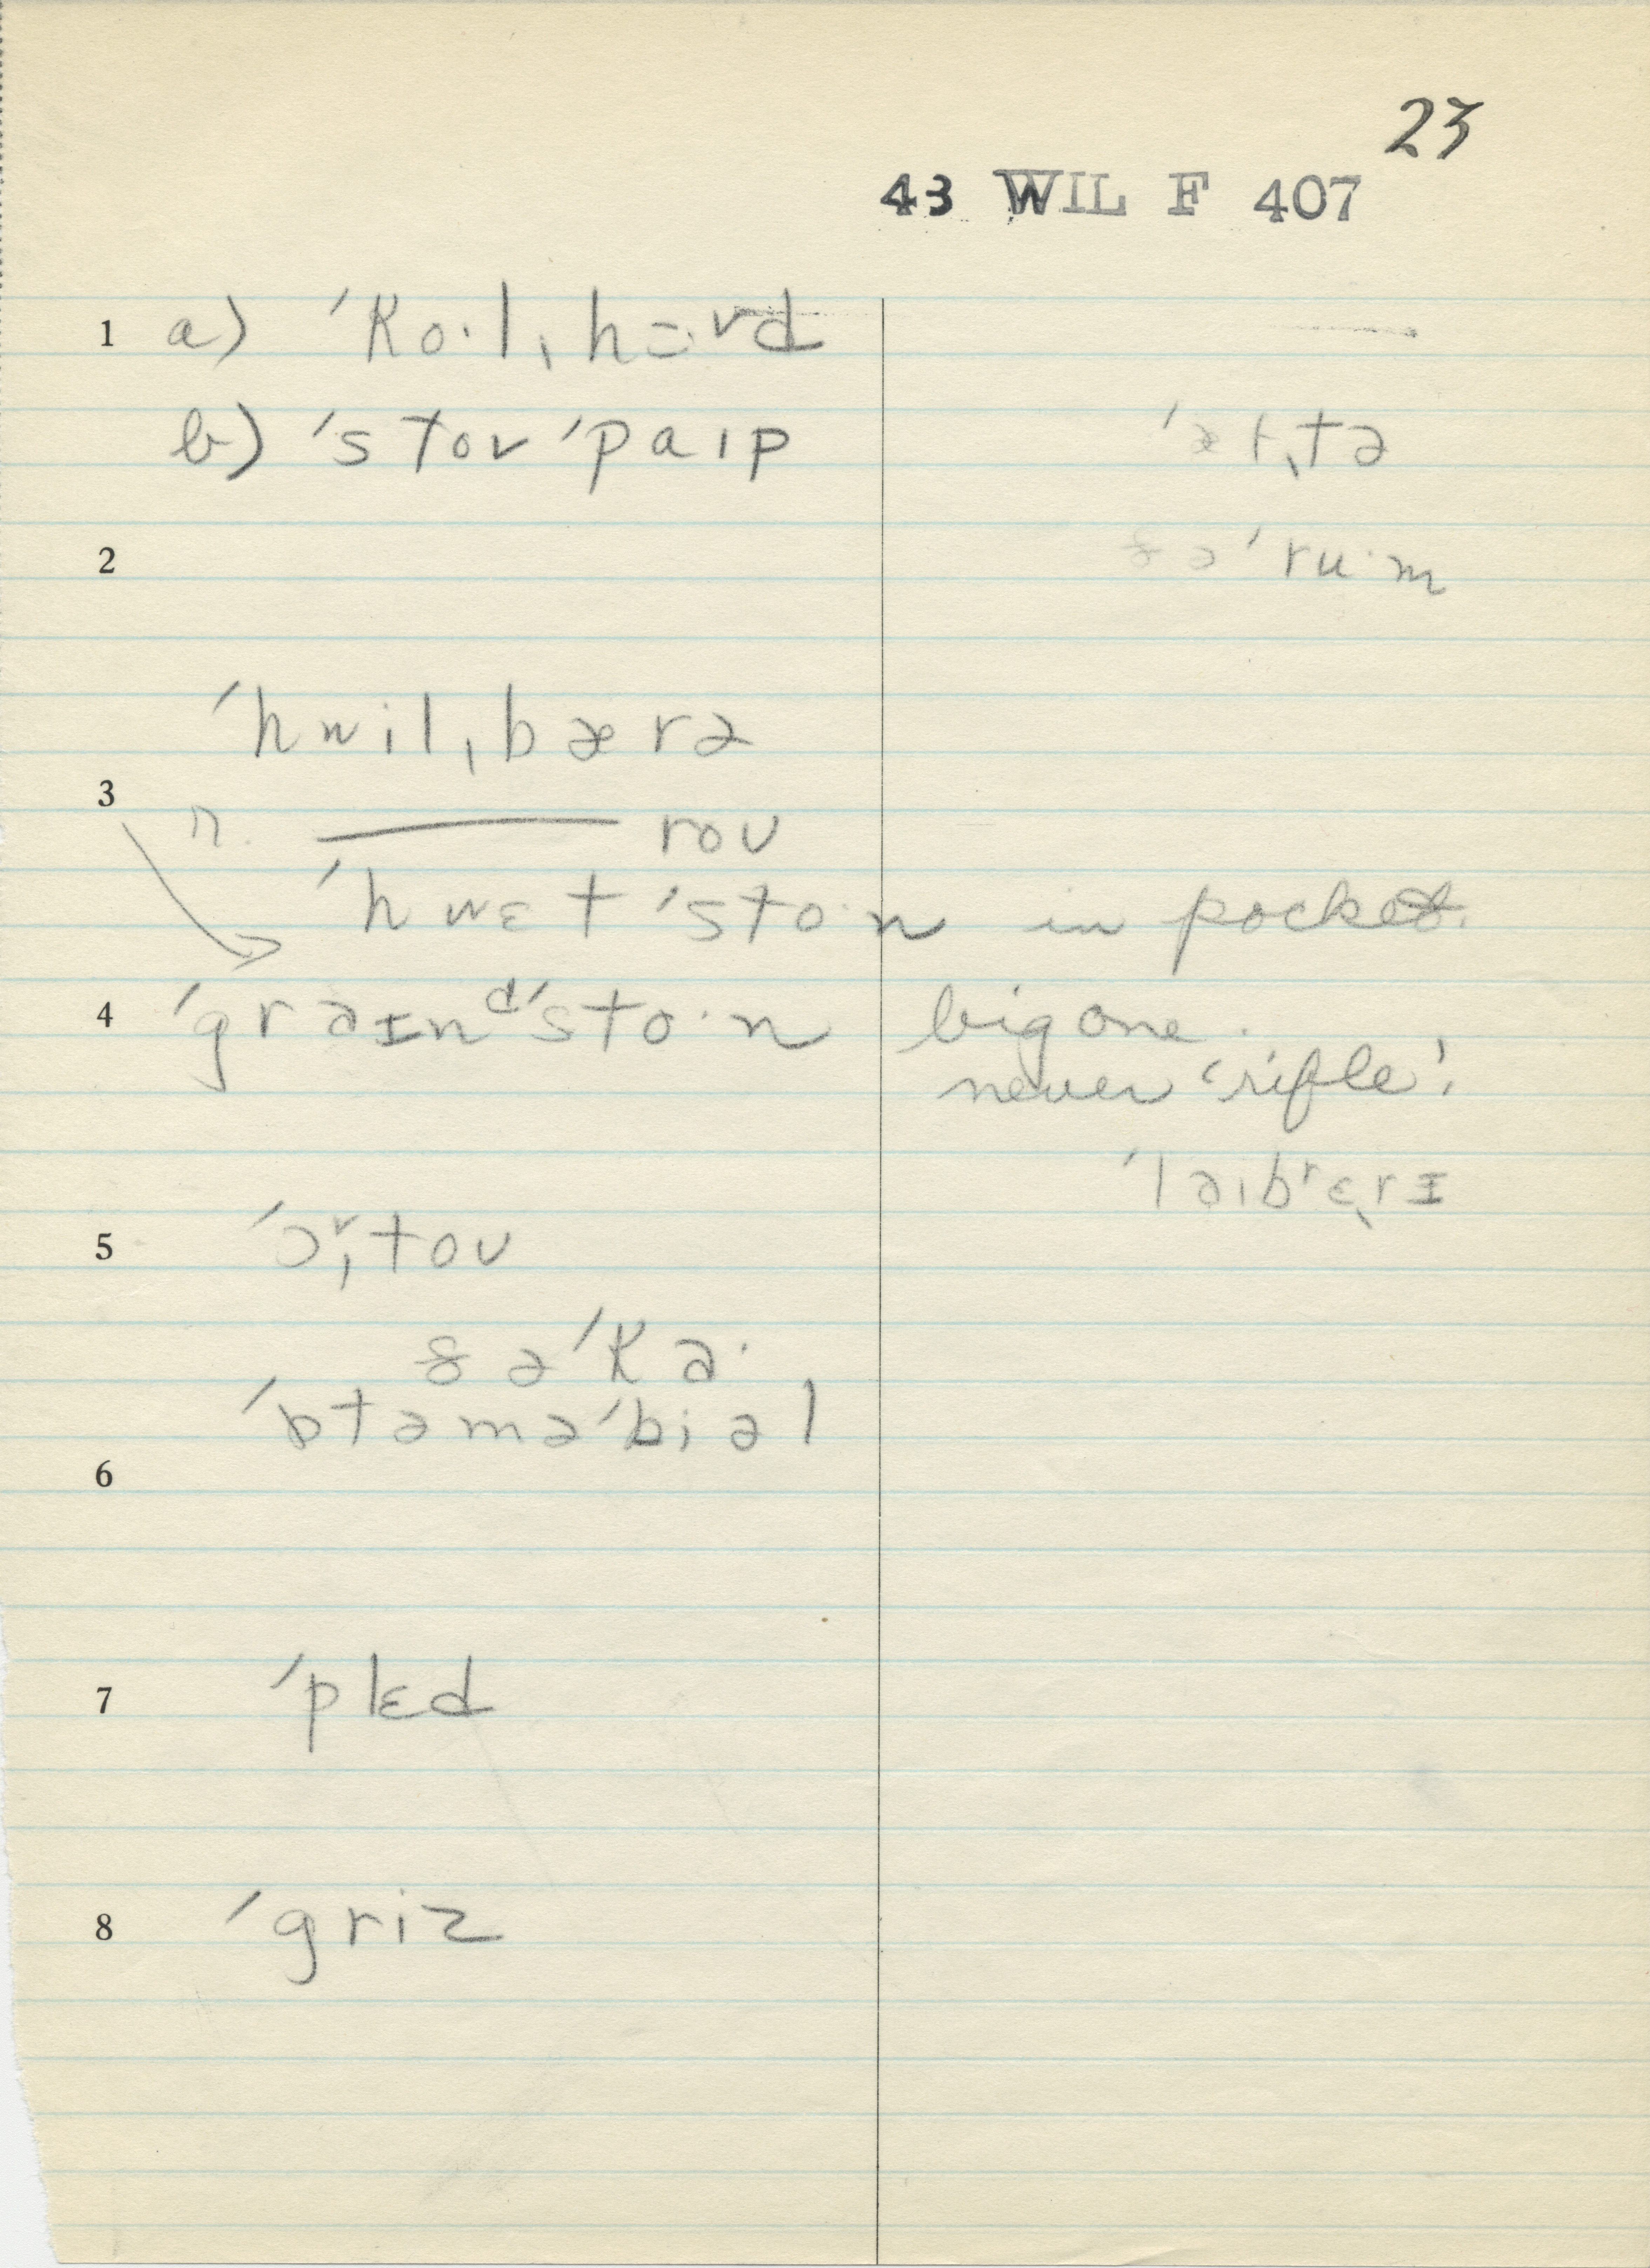 23
43 WIL F 407
1 a) ˈko·lˌhɔ·vd
b) ˈstov ˈpaɪp ˈæt‚tə
2 ðəˈru·m
ˈhwilˌbærə
3 n. —— roʊ
ˈhwɛt ˈsto·n in pocket.
4 ˈgrəɪnᵈˈsto·n big one.
never 'rifle'!
ˈləɪbʳɛˌrɪ
5 ˈɔʳˌtoʊ
ðəˈka·
ˈɒtəməˈbiəl
6
7 ˈplɛd
8 ˈgriz